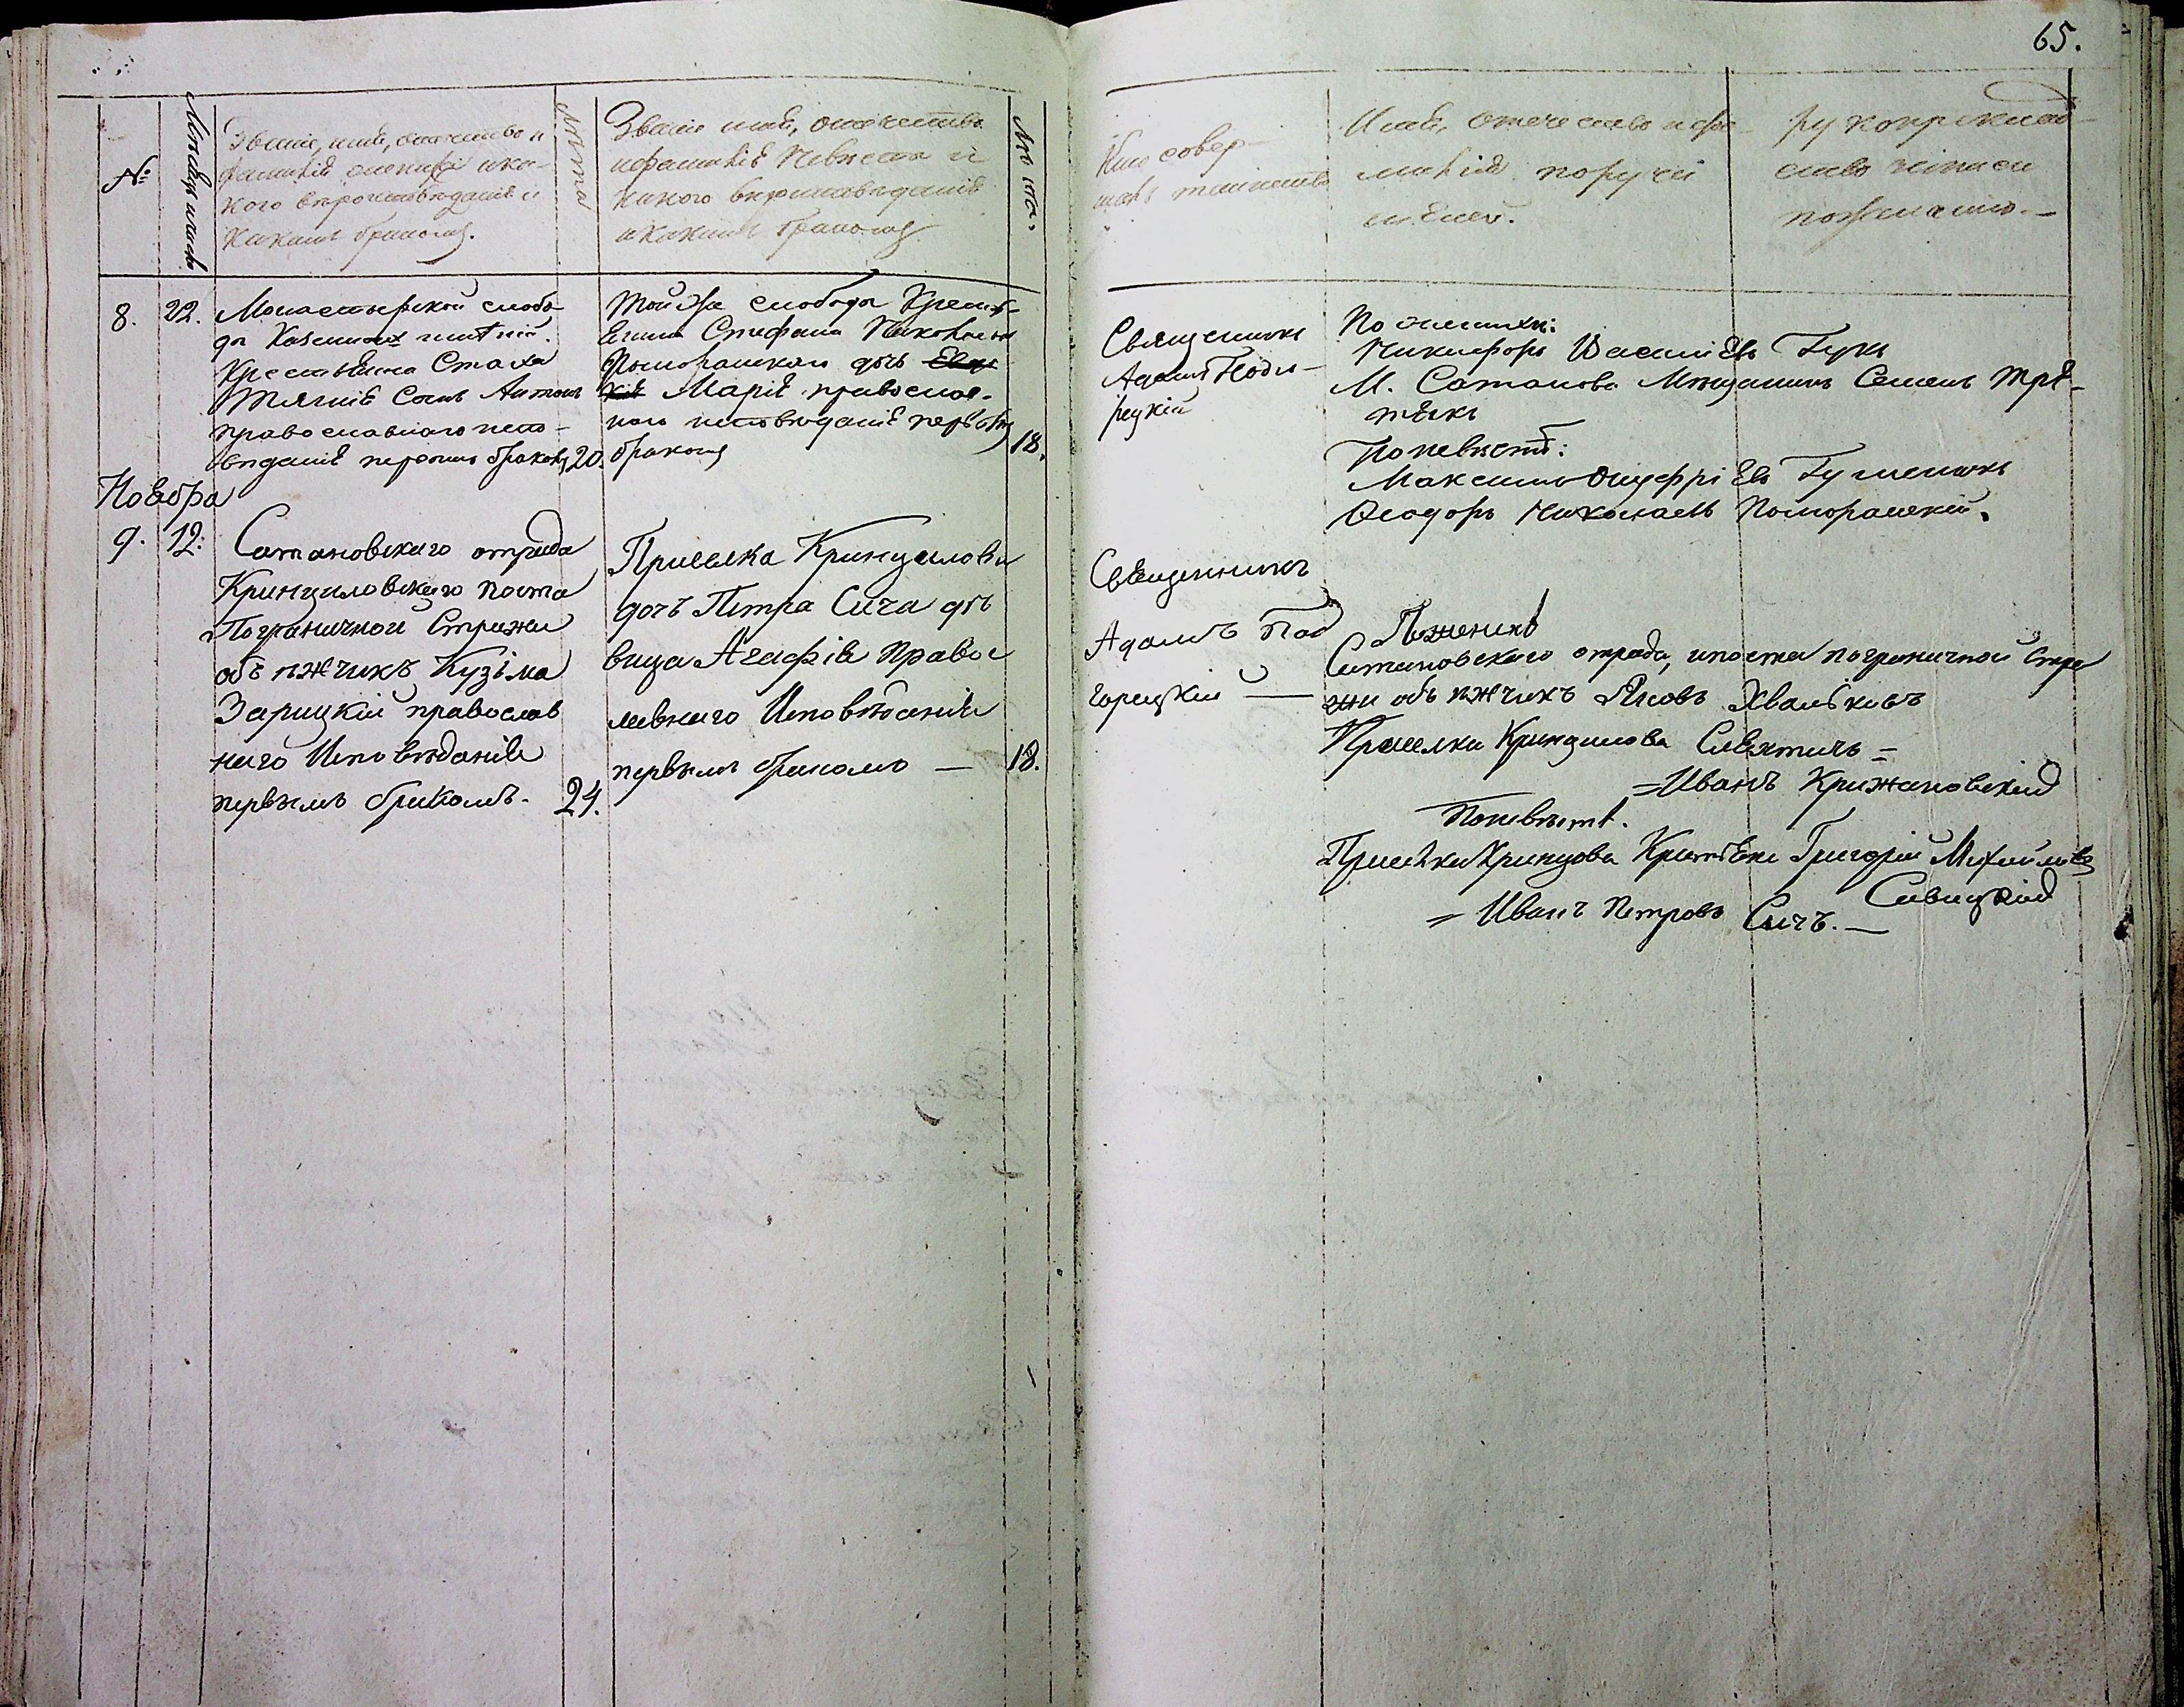 65.
№
Мѣсяцъ и число
Званіе, имя, отчество и
фамилія жениха и ка-
кого вѣроисповѣданія и
какимъ бракомъ.
Лѣта
Званіе имя, отечество
и фамилія Невѣсты и
какого вѣроисповѣданія
и какимъ бракомъ
Лѣта.
Кто совер-
шалъ таинство
Имя, отечество и фа-
милія поручи
телей.
рукоприклад-
ство записи
по желанію.
8.
22.
Монастырской слобо
ды Казенных имѣній.
Крестьянина Стаха
Тягнія Сынъ Антонъ
православнаго испо-
вѣданія первымъ бракомъ
20.
Той же слободы Крестья-
янина Стефана Николаева
Поморанскаго дочь
Марія православ-
наго исповѣданія первымъ
бракомъ
18.
Священникъ
Адамъ Подго-
рецкій
По женихѣ:
Никифоръ Василіевъ Гукъ
М. Сатанова Мѣщанинъ Семенъ Трѣ-
тякъ
По невѣстѣ:
Максимъ Онуфріевъ Гуменюкъ
Ѳеодоръ Николаевъ Поморанскій.
Ноября
9.
12.
Сатановскаго отряда
Кринциловскаго поста
Пограничной Стражи
объѣжчикъ Кузіма
Зарицкій православ
наго Исповѣданія
первымъ бракомъ.
24.
Присѣлка Кринцилова
дочь Петра Сича дѣ
вица Агафія Правос
лавнаго Исповѣданія
первымъ бракомъ —
18.
Священникъ
Адамъ Под
горецкій —
По женихѣ
Сатановскаго отряда, и поста пограничной Стра
жи объѣжчикъ Яковъ Хваліковъ
Приселка Кринцилова =
= Иванъ Крижановскій
По невѣстѣ.
Присѣлка Кринцова Григорій Михайловъ
Савицкій
= Иванъ Петровъ Сичъ. —